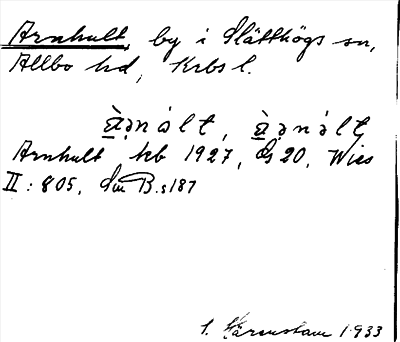 Arnhult, by i Slätthögs sn,
Allbo hd, Krbs l.
à̱ə̣nòlt, à̱ə̣nòlt
Arnhult kb 1927, GS 20, Wies
II: 805, Sm B. s 187
1933